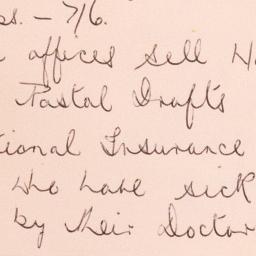 ps. – 7/6.
offices sell
Postal Drafts
tional Insurance
who have sick
by their Doctor